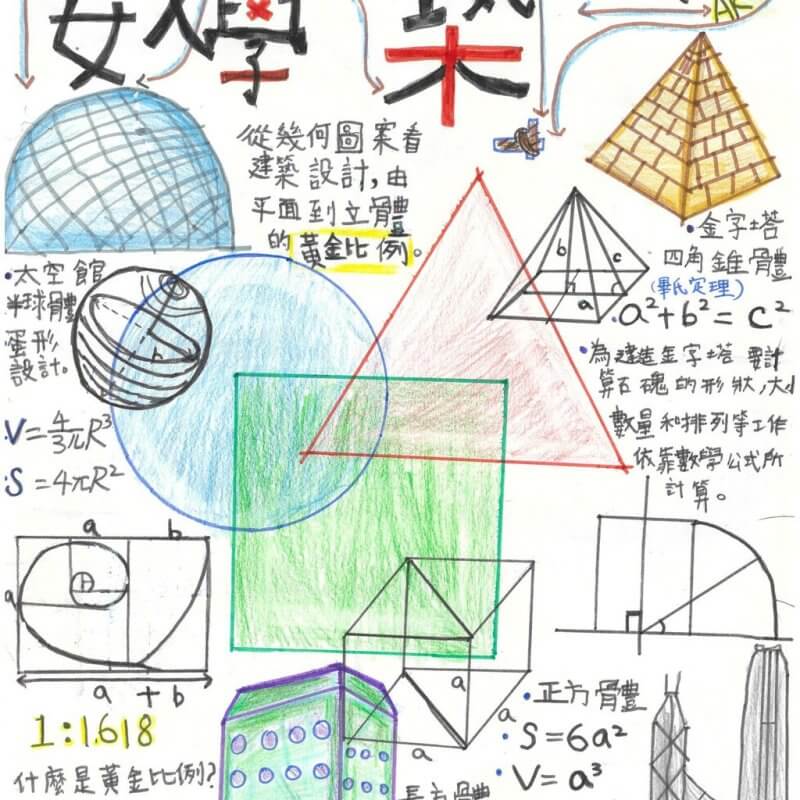 數學
從幾何圖案看
建築設計,由
平面到立體
的黃金比例。
金字塔
四角錐體
(畢氏定理)
b
c
h
c
a
•a²+b²=c²
•為建造金字塔要計
算石塊的形狀,大小
數量和排列等工作
依靠數學公式所
計算。
•太空館
半球體
蛋形
設計。
h
V=4/3πR³
S=4πR²
a
b
a
a + b
1:1.618
什麼是黃金比例?
a
a
a
•正方體
•S=6a²
•V=a³
長方體